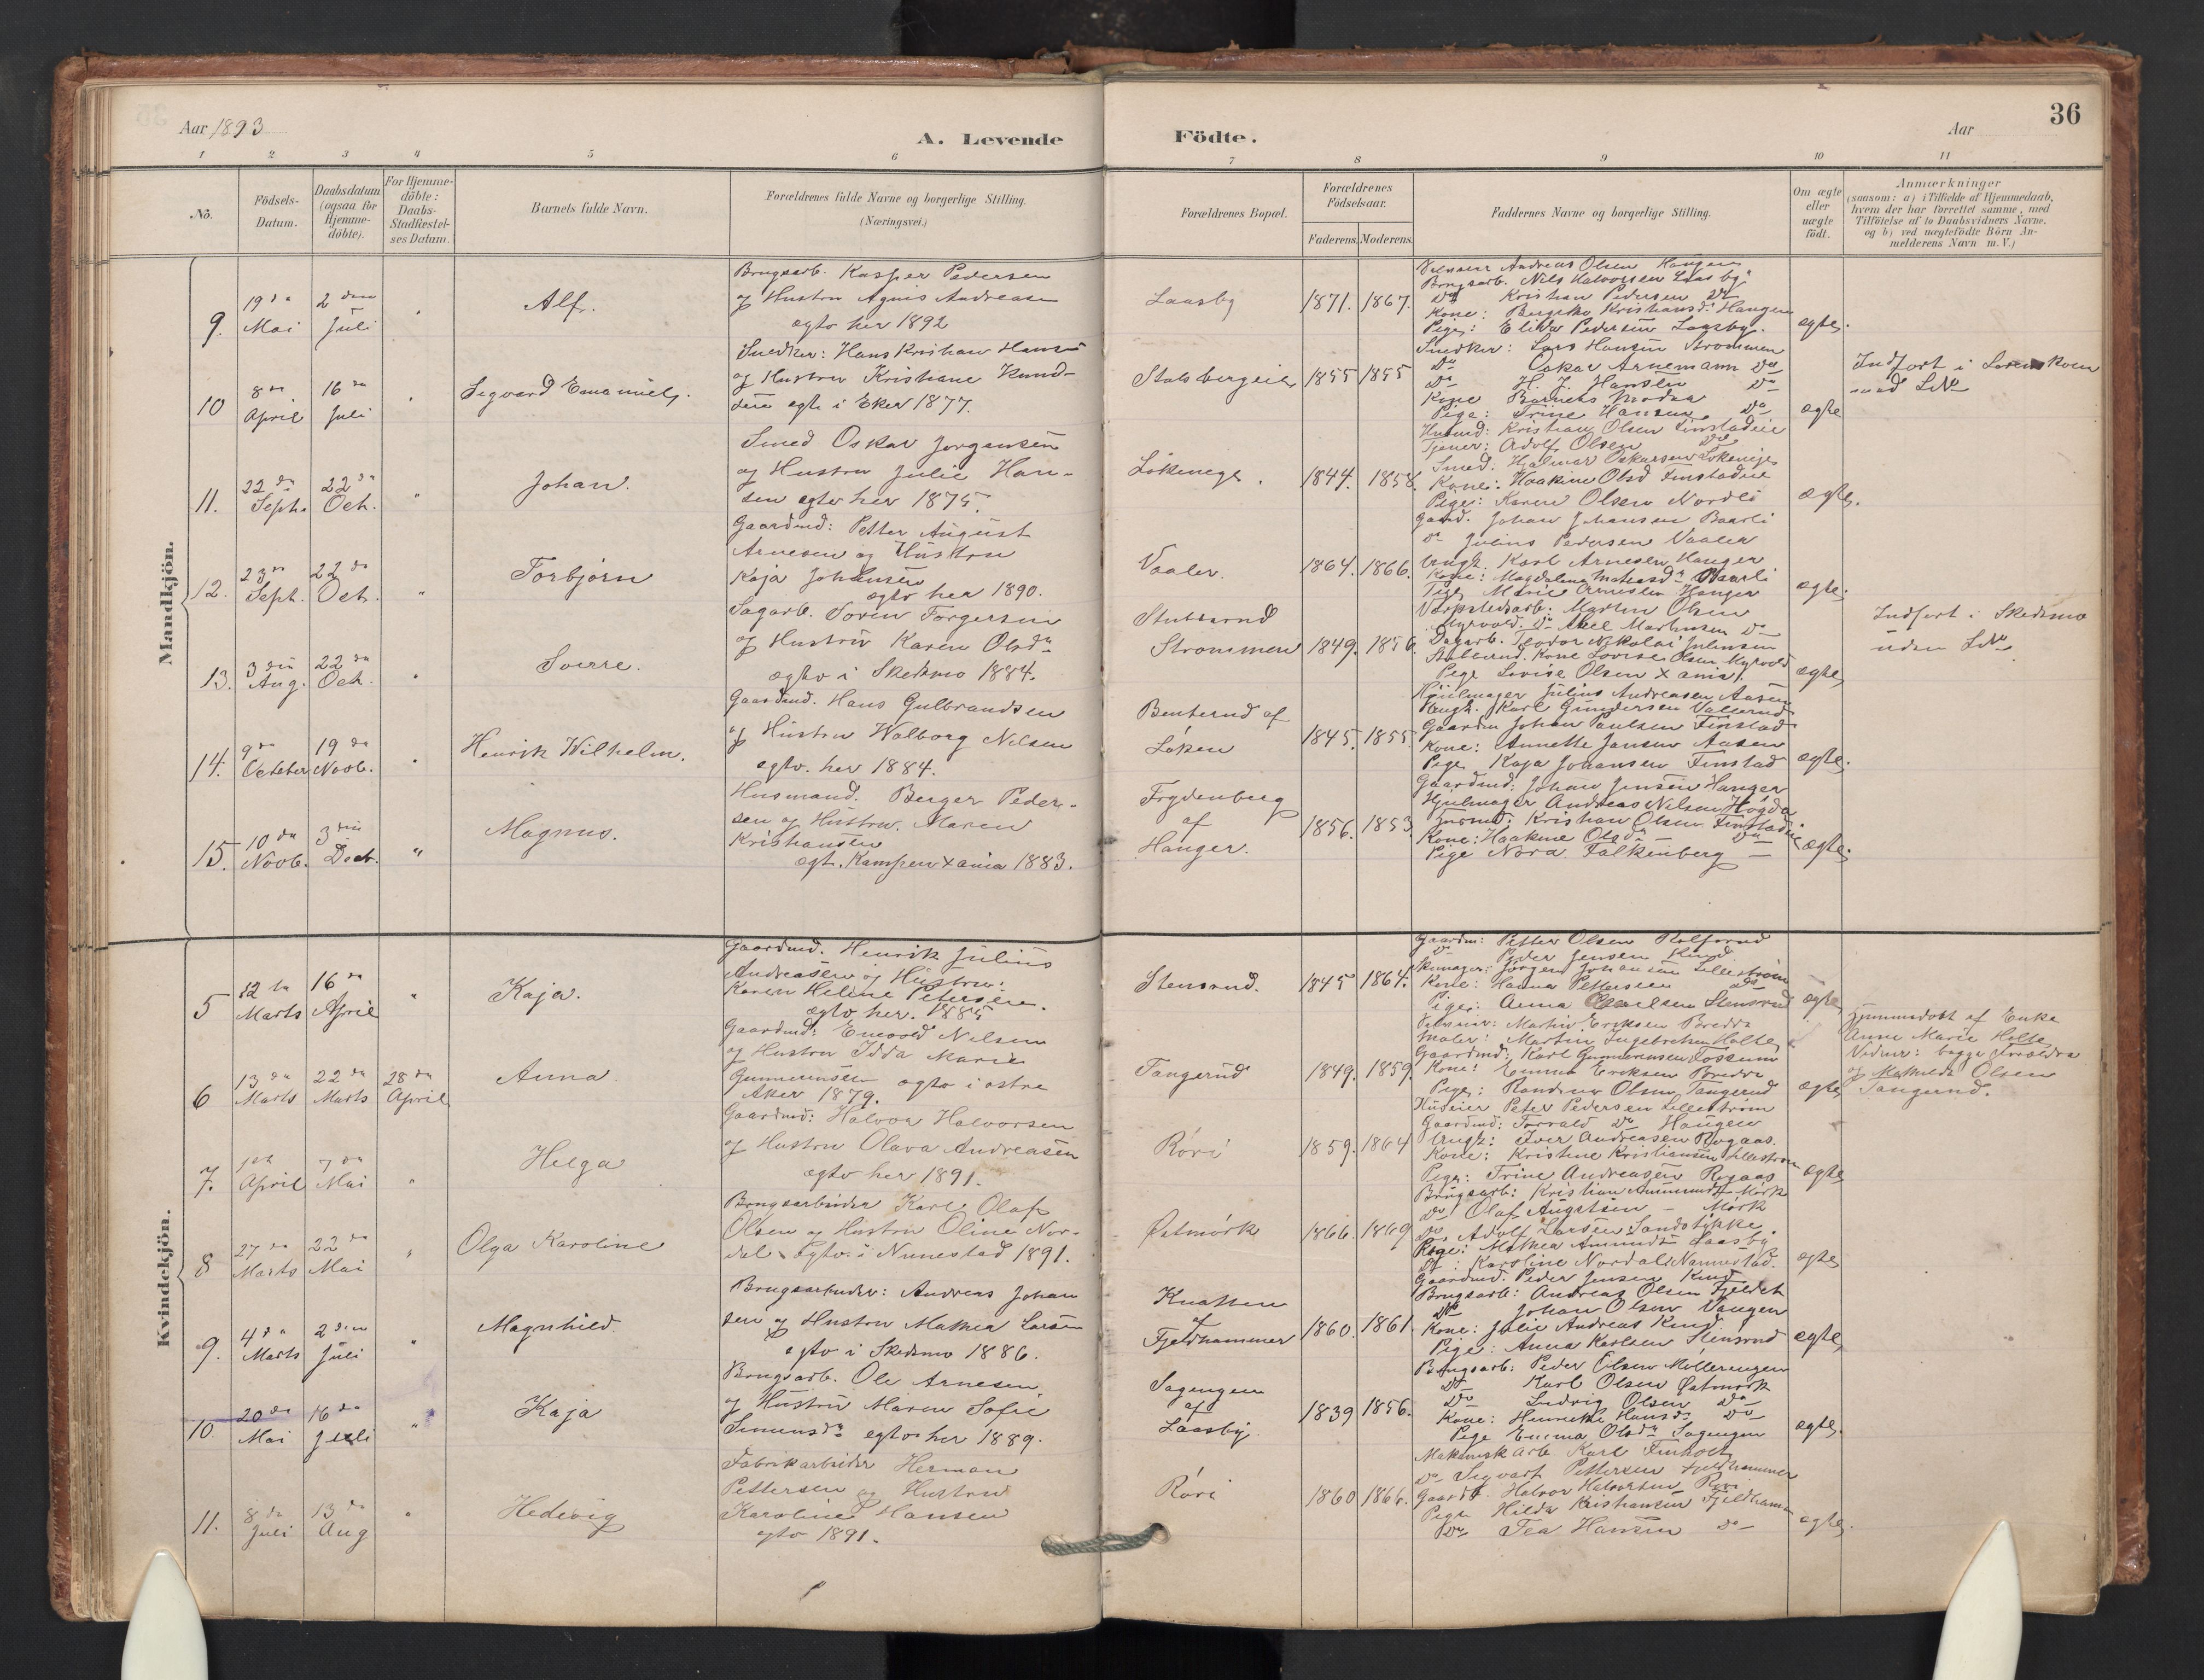 36
Aar 1893
A. Levende
Födte.
Aar
1 2 3 4 5 6 7 8 9 10 11
No.
Födsels-Datum.
Daabsdatum (ogsaa for Hjemme-döbte).
For Hjemme-döbte: Daabs-Stadfæstel-ses Datum.
Barnets fulde Navn.
Forældrenes fulde Navne og borgerlige Stilling.
(Næringsvei.)
Forældrenes Bopæl.
Forældrenes Födselsaar.
Faderens. Moderens.
Faddernes Navne og borgerlige Stilling.
Om ægte eller uægte födt.
Anmærkninger
(saasom: a) i Tilfælde af Hjemmedaab,
hvem der har forrettet samme, med
Tilföielse af to Daabsvidners Navne.
og b) ved uægtefödte Börn An-
melderens Navn m. V.)
Mandkjön.
9.
19 de Mai
2 den Juli
Alf.
Brugsarb. Kasper Pedersen
og Hustru Agnis Andreasen
egtv her 1892
Laasby
1871. 1867.
Andreas Olsen Haugen
Brugsarb. Nils Halvorsen Laasby
Do Kristian Pedersen Do
Kone: Kristiansdr Haugen
Pige: Pedersen Laasby.
ægte.
10
8 de April
16 de Juli
Segvard Emanuel.
Snedker: Hans Kristian Hansen
og Hustru Kristiane Knud-
sen egtv i Eker 1877.
Stalsbergeie
1855 1855
Snedker: Lars Hansen Strømmen
Do Oskar Arnemann Do
Do H. J. Hansen Do
Kone Barnets Moder
Pige: Trine Hansen Do
ægte
Indført i
med LNo
11.
22 de Septr.
22 de Oct.
Johan.
Smed Oskar Jorgensen
og Hustru Julie Han-
sen egtv her 1875.
Løkeneye.
1844. 1858.
Husmd: Kristian Olsen Finstadeie
Tjener: Adolf Olsen Do
Smed: Hjalmar Oskarsen Løkeneye
Kone: Haakine Olsd Finstadeie
Pige: Karen Olsen Nordli
ægte.
12.
23 de Sept.
22 de Oct.
Torbjørn
Gaardmd: Petter August
Arnesen og Hustru
Kaja Johansen
egtv her 1890.
Vaaler.
1864. 1866.
Gaard. Johan Johansen Baarli
Do Julius Pedersen Vaaler
Ungk. Karl Arnesen Hanger
Kone: Magdalena Baarli
Pige Marie Arnesen Hanger
ægte.
13.
3 die Aug.
22 de Oct.
Sverre.
Sagarb. Soren Torgersen
og Hustru Karen Olsdr
egtv i Skedsmo 1884.
Stubberud
Strommen
1849. 1856.
Værkstedsarb: Martin Olsen
Myrvold. Do Axel Martinsen Do
Dagarb. Teodor Nikolai Julinsen
Stubberud. Kone Lovise Olsen Myrvold
Pige Lovise Olsen Xania.
ægte
Indført i Skedsmo
uden LNo
14.
9 de October
19 de Novb.
Henrik Wilhelm.
Gaardmd. Hans Gulbrandsen
og Hustru Walborg Nilsen
egtv. her 1884.
Benterud af
Løken
1845. 1855.
Hjulmager Julius Andreasen Aasen
Ungk. Karl Gundersen Vallerud
Gaardm Johan Paulsen Finstad
Kone: Annette Jansen Aasen
Pige Kaja Johansen Finstad
ægte.
15.
10 de Novb.
3 die Decb.
Magnus.
Husmand. Berger Peder-
sen og Hustru. Maren
Kristiansen
egt. Kampen Xania 1883.
Frydenberg
af
Hanger.
1856. 1853
Gaardmd. Johan Jensen Hanger
Hjulmager Andreas Nilsen Høgda
Husmd: Kristian Olsen Finstadeie
Kone: Haakine Olsdr Do
Pige Nora Falkenberg
ægte.
Kvindekjön.
5
12 te Marts
16 de April
Kaja.
Gaardmd. Henrik Julius
Andreasen og Hustru:
Karen Heline Petersen.
egtv her. 1885
Stensrud.
1845 1864.
Gaardm: Petter Olsen Rolfsrud
Do Peder Jensen Knud
Skomager: Jørgen Johansen Lillestrøm
Kone: Hanna Pettersen Do
Pige: Anna Karlsen Stensrud
ægte
6
13 de Marts
22 de Marts
28 de April
Anna.
Gaardmd: Enevold Nilsen
og Hustru Idda Marie
Gunnerensen egtv i østre
Aker 1879.
Tangerud
1849. 1859.
Martin Eriksen Bredde
Maler: Martin Ingebretsen Holte
Gaardmd: Karl Gunnerensen Fossum
Kone: Emma Eriksen Bredde
Pige: Randine Olsen Tangerud
ægte
Hjemmedøbt af Enke
Anne Marie Holte
Vidner: begge Foreldre
og Mathilde Olsen
Tangerud.
7.
April
7 de Mai
Helga
Gaardmd: Halvor Halvorsen
og Hustru Olava Andreasen
egtv her 1891.
Røri
1859. 1864
Huseier Peter Pedersen Lillestrøm
Gaardmd: Torvald Do Haugen
Ungk: Iver Andreasen Rogaas.
Kone: Kristine Kristiansen Lillestrøm
Pige: Trine Andreasen Rogaas
ægte
8
27 de Marts
22 de Mai
Olga Karoline
Brugsarbeider Karl Olaf
Olsen og Hustru Oline Nor-
dal. Egtv. i Nannestad 1891.
Østmørk
1866. 1869
Brugsarb: Kristian Amundsen Mørk
Do Olaf Augstsen - Mørk
Do Adolf Larsen Sandstykke.
Kone: Mathea Amunds Laasby
Karoline Nordal Nannestad.
ægte
9.
4 de Marts
2 den Juli
Magnhild.
Brugsarbeider: Andreas Johan
sen og Hustru Mathea Larsen
egtv i Skedsmo 1886.
Knatten
af
Fjeldhammer
1860. 1861.
Gaardmd. Peder Jensen Knud
Brugsarb: Andreas Olsen Fjeldet
Do Johan Olsen Vangen
Kone: Julie Andreas Knud
Pige: Anna Karlsen Stensrud
ægte
10.
20 de Mai
16 de Juli
Kaja
Brugsarb. Ole Arnesen,
og Hustru Maren Sofie
Simensdr egtv her 1889.
Sagengen
af
Laasby
1839 1856.
Brugsarb: Peder Olsen Møllerengen
Do Karl Olsen Østmørk
Do Ludvig Olsen Do
Kone: Henrikke Hansdr Do
Pige Emma Olsdr Sagengen
ægte.
11.
8 de Juli
13 de Aug
Hedevig
Fabrikarbeider Herman
Pettersen og Hustru
Karoline Hansen
egtv 1891.
Røri
1860 1866.
Mekanisk Arb Karl Finholt
Do Segvart Pettersen Fjeldhammer
Gaardb. Halvor Halvorsen Røri
Pige Hilda Kristiansen Fjeldhamm
Do Tea Hansen Do
ægte.